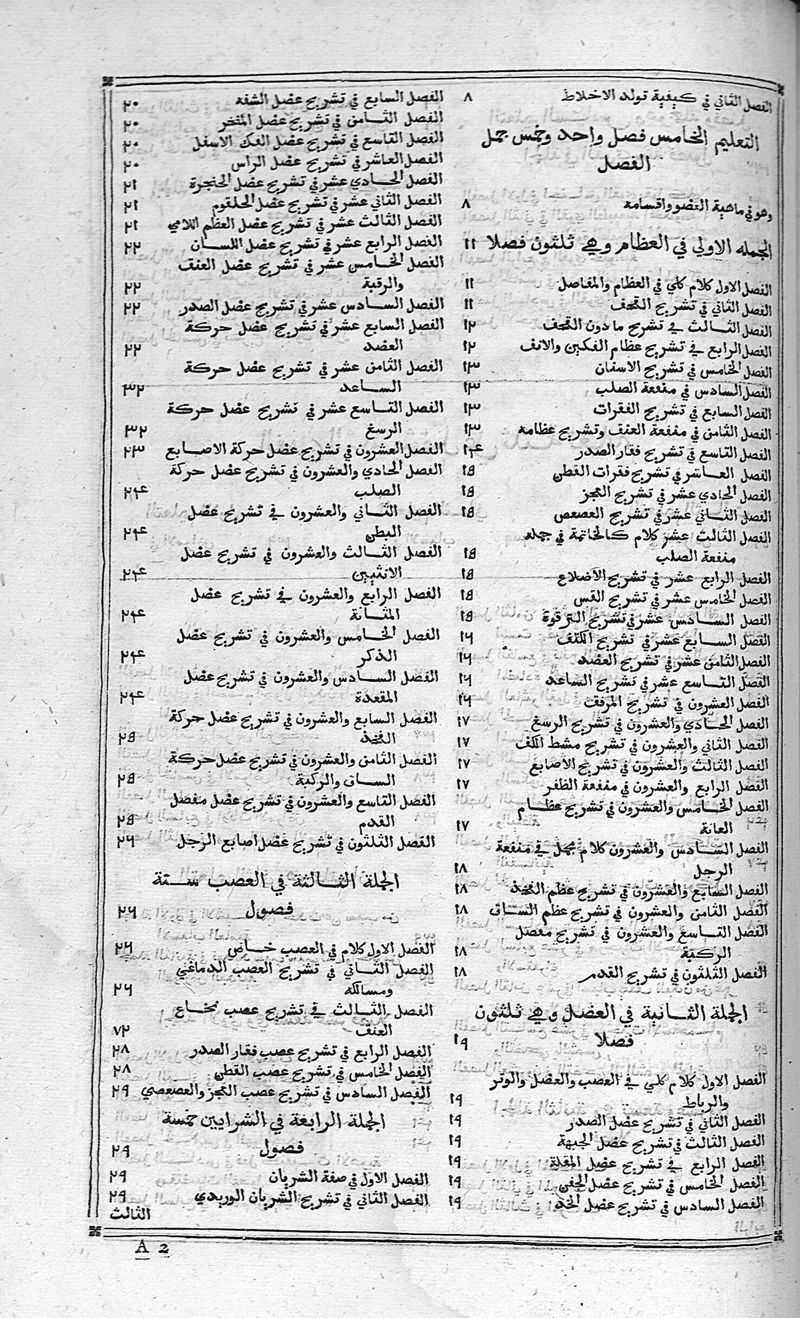 الفصل الثاني في كيفية تولد الاخلاط ٨
التعليم الخامس فصل واحد وخمس جمل
الفصل
وهو في ماهية العضو واقسامه ٨
الجمله الاولي في العظام وهي ثلثون فصلا ١١
الفصل الاول كلام كلي في العظام والمفاصل ١١
الفصل الثاني في تشريح القحف ١١
الفصل الثالث في تشريح ما دون القحف ١٢
الفصل الرابع في تشريح عظام الفكين والانف ١٢
الفصل الخامس في تشريح الاسنان ١٣
الفصل السادس في منفعة الصلب ١٣
الفصل السابع في تشريح الفقرات ١٣
الفصل الثامن في منفعة العنق وتشريح عظامه ١٣
الفصل التاسع في تشريح فقار الصدر ١٤
الفصل العاشر في تشريح فقرات القطن ١٥
الفصل الحادي عشر في تشريح العجز ١٥
الفصل الثاني عشر في تشريح العصعص ١٥
الفصل الثالث عشر كلام كالخاتمة في جملة
منفعة الصلب ١٥
الفصل الرابع عشر في تشريح الاضلاع ١٥
الفصل الخامس عشر في تشريح القس ١٥
الفصل السادس عشر في تشريح الترقوة ١٥
الفصل السابع عشر في تشريح الكتف ١٦
الفصل الثامن عشر في تشريح العضد ١٦
الفصل التاسع عشر في تشريح الساعد ١٦
الفصل العشرون في تشريح المرفق ١٦
الفصل الحادي والعشرون في تشريح الرسغ ١٧
الفصل الثاني والعشرون في تشريح مشط الكف ١٧
الفصل الثالث والعشرون في تشريح الاصابع ١٧
الفصل الرابع والعشرون في منفعة الظفر ١٧
الفصل الخامس والعشرون في تشريح عظام
العانة ١٧
الفصل السادس والعشرون كلام مجمل في منفعة
الرجل ١٨
الفصل السابع والعشرون في تشريح عظم الفخذ ١٨
الفصل الثامن والعشرون في تشريح عظم الساق ١٨
الفصل التاسع والعشرون في تشريح مفصل
الركبة ١٨
الفصل الثلثون في تشريح القدم ١٨
الجملة الثانية في العضل وهي ثلثون
فصلا ١٩
الفصل الاول كلام كلي في العصب والعضل والوتر
والرباط ١٩
الفصل الثاني في تشريح عضل الصدر ١٩
الفصل الثالث في تشريح عضل الجبهة ١٩
الفصل الرابع في تشريح عضل المقلة ١٩
الفصل الخامس في تشريح عضل الجفن ١٩
الفصل السادس في تشريح عضل الخد ١٩
الفصل السابع في تشريح عضل الشفه ٢٠
الفصل الثامن في تشريح عضل المنخر ٢٠
الفصل التاسع في تشريح عضل الفك الاسفل ٢٠
الفصل العاشر في تشريح عضل الراس ٢٠
الفصل الحادي عشر في تشريح عضل الحنجرة ٢١
الفصل الثاني عشر في تشريح عضل الحلقوم ٢١
الفصل الثالث عشر في تشريح عضل العظم اللامي ٢١
الفصل الرابع عشر في تشريح عضل اللسان ٢٢
الفصل الخامس عشر في تشريح عضل العنق
والرقبة ٢٢
الفصل السادس عشر في تشريح عضل الصدر ٢٢
الفصل السابع عشر في تشريح عضل حركة
العضد ٢٢
الفصل الثامن عشر في تشريح عضل حركة
الساعد ٣٢
الفصل التاسع عشر في تشريح عضل حركة
الرسغ ٣٢
الفصل العشرون في تشريح عضل حركة الاصابع ٢٣
الفصل الحادي والعشرون في تشريح عضل حركة
الصلب ٢٤
الفصل الثاني والعشرون في تشريح عضل
البطن ٢٤
الفصل الثالث والعشرون في تشريح عضل
الانثيين ٢٤
الفصل الرابع والعشرون في تشريح عضل
المثانة ٢٤
الفصل الخامس والعشرون في تشريح عضل
الذكر ٢٤
الفصل السادس والعشرون في تشريح عضل
المقعدة ٢٤
الفصل السابع والعشرون في تشريح عضل حركة
الفخذ ٢٥
الفصل الثامن والعشرون في تشريح عضل حركة
الساق والركبة ٢٥
الفصل التاسع والعشرون في تشريح عضل مفصل
القدم ٢٥
الفصل الثلثون في تشريح عضل اصابع الرجل ٢٦
الجملة الثالثة في العصب ستة
فصول ٢٦
الفصل الاول كلام في العصب خاص ٢٦
الفصل الثاني في تشريح العصب الدماغي
ومسالكه ٢٦
الفصل الثالث في تشريح عصب نخاع
العنق ٧٢
الفصل الرابع في تشريح عصب فقار الصدر ٢٨
الفصل الخامس في تشريح عصب القطن ٢٨
الفصل السادس في تشريح عصب العجز والعصعصي ٢٩
الجملة الرابعة في الشرايين خمسة
فصول ٢٩
الفصل الاول في صفة الشريان ٢٩
الفصل الثاني في تشريح الشريان الوريدي ٢٩
الثالث
A 2